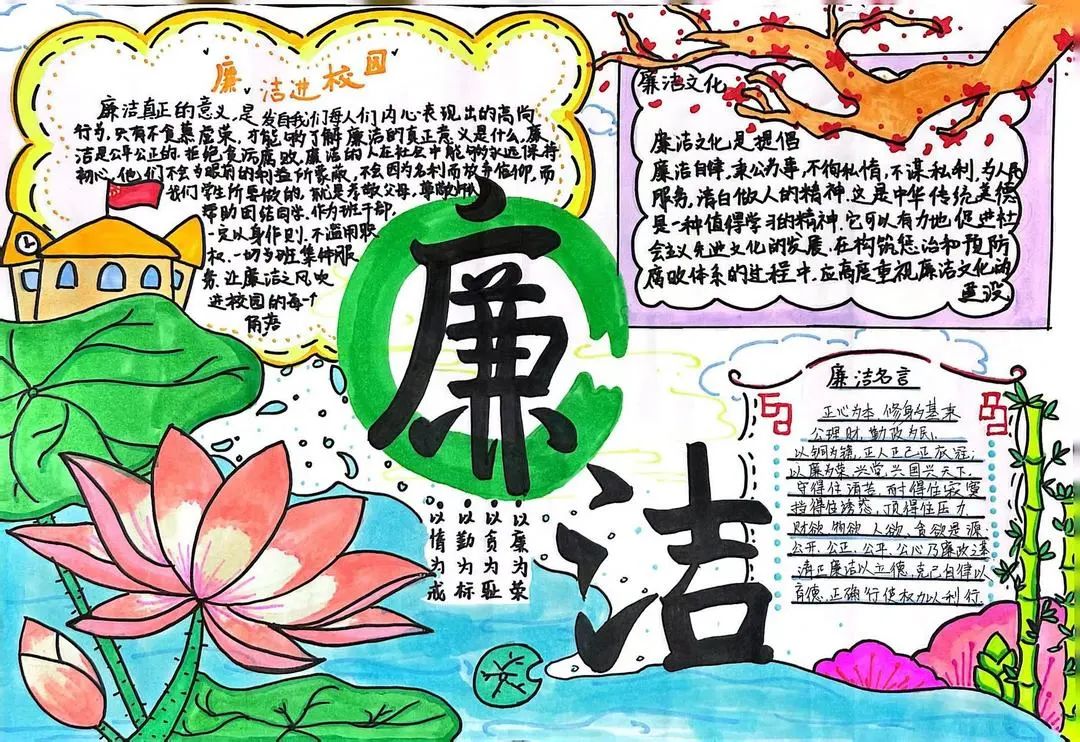 廉洁进校园
廉洁真正的意义,是发自我们每人们内心表现出的高尚
行为.只有不贪慕虚荣,才能够了解廉洁的真正意义是什么.廉
洁是公平公正的.拒绝贪污腐败.廉洁的人在社会中能够永远保持
初心.他们不会为眼前的利益所蒙蔽,不会因为名利而放弃信仰.而
我们学生所要做的,就是孝敬父母,尊敬师
帮助团结同学.作为班干部,
一定以身作则,不滥用职
权.一切为班集体服
务.让廉洁之风吹
进校园的每个
角落
廉洁文化
廉洁文化是提倡
廉洁自律,秉公办事,不徇私情,不谋私利,为人民
服务,清白做人的精神.这是中华传统美德
是一种值得学习的精神.它可以有力地促进社
会主义先进文化的发展.在构筑惩治和预防
腐败体系的过程中,应高度重视廉洁文化的
建设
廉洁
以廉为荣
以贪为耻
以勤为标
以情为戒
廉洁名言
正心为本 修身为基来
公理财,勤政为民;
以铜为镜,正人正己正衣冠;
以廉为荣,兴党,兴国兴天下.
守得住清苦,耐得住寂寞
挡得住诱惑,顶得住压力.
财欲物欲 人欲,贪欲是源;
公开,公正,公平,公心乃廉政之基
清正廉洁以立德,克己自律以
育德,正确行使权力以利行